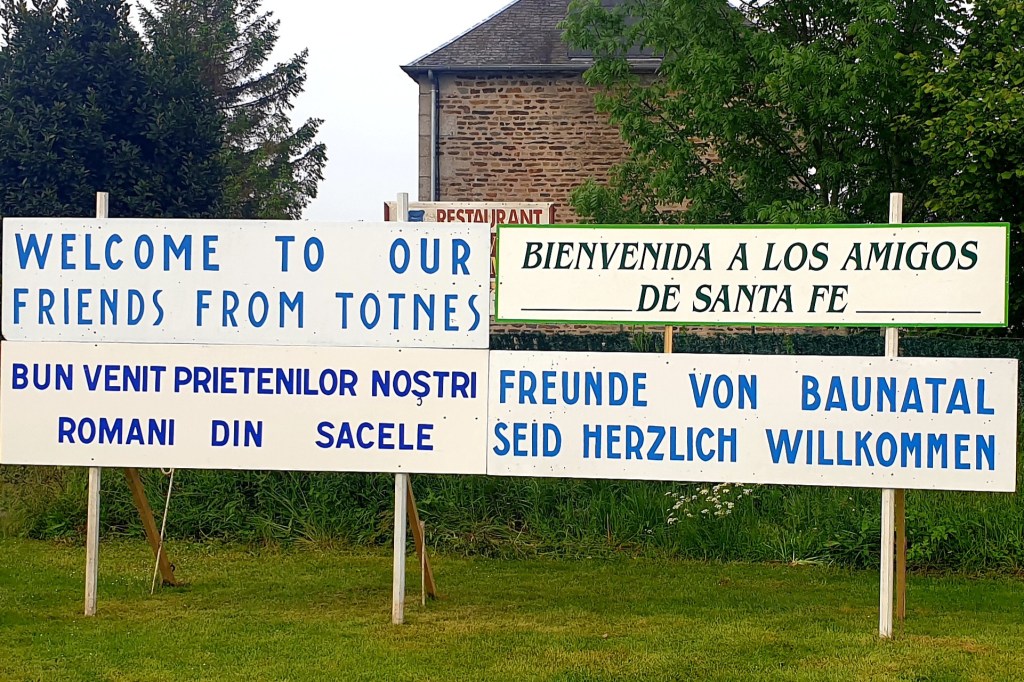 RESTAURANT
WELCOME TO OUR
FRIENDS FROM TOTNES
BIENVENIDA A LOS AMIGOS
DE SANTA FE
BUN VENIT PRIETENILOR NOŞTRI
ROMANI DIN SACELE
FREUNDE VON BAUNATAL
SEID HERZLICH WILLKOMMEN